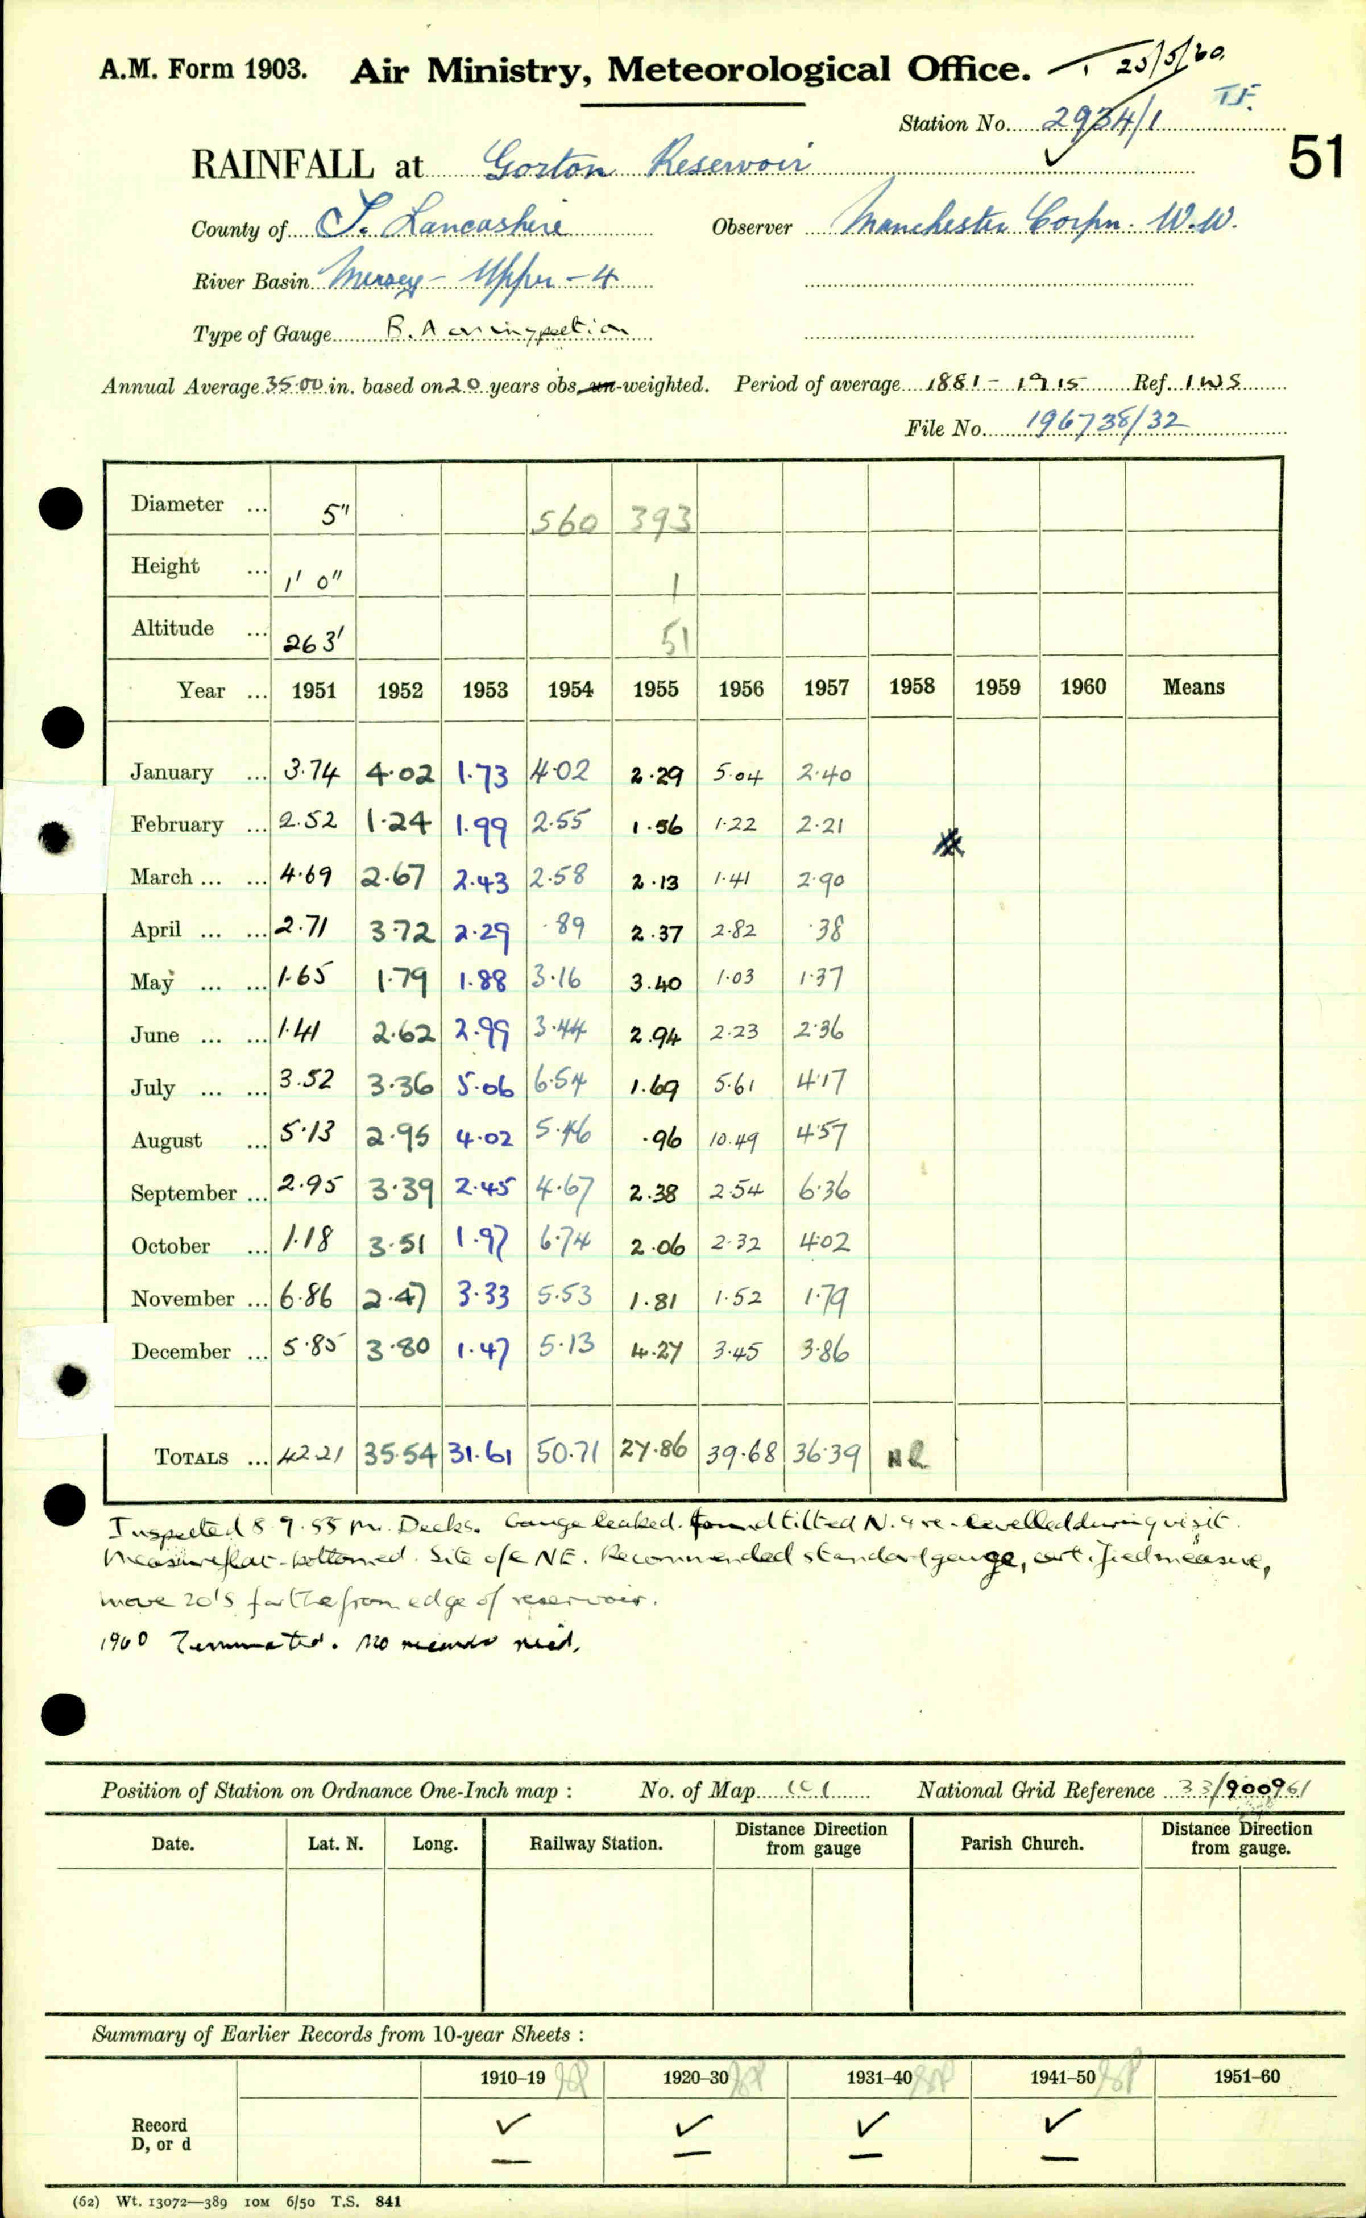 A.M. Form 1903. Air Ministry, Meteorological Office. 25/5/60.
T.F.
Station No. 2934/1
51
RAINFALL at Gorton Reservoir
County of S. Lancashire Observer Manchester Corpn. W.W.
River Basin Mersey - Upper - 4
Type of Gauge B.A on inspection
Annual Average 35.00 in. based on 20 years obs. un-weighted. Period of average 1881 - 1915 Ref. IWS
File No. 196738/32
Diameter ... 5" 560 393
Height ... 1' 0" 1
Altitude ... 263' 51
Year ... 1951 1952 1953 1954 1955 1956 1957 1958 1959 1960 Means
January ... 3.74 4.02 1.73 4.02 2.29 5.04 2.40
February ... 2.52 1.24 1.99 2.55 1.56 1.22 2.21
March ... ... 4.69 2.67 2.43 2.58 2.13 1.41 2.90
April ... ... 2.71 3.72 2.29 .89 2.37 2.82 .38
May ... ... 1.65 1.79 1.88 3.16 3.40 1.03 1.37
June ... ... 1.41 2.62 2.99 3.44 2.94 2.23 2.36
July ... ... 3.52 3.36 5.06 6.54 1.69 5.61 4.17
August ... 5.13 2.95 4.02 5.46 .96 10.49 4.57
September ... 2.95 3.39 2.45 4.67 2.38 2.54 6.36
October ... 1.18 3.51 1.97 6.74 2.06 2.32 4.02
November ... 6.86 2.47 3.33 5.53 1.81 1.52 1.79
December ... 5.85 3.80 1.47 5.13 4.27 3.45 3.86
TOTALS ... 42.21 35.54 31.61 50.71 27.86 39.68 36.39 NR
Inspected 8.9.55 Mr. Deeks. Gauge leaked. found tilted N. & re-levelled during visit.
Measure flat-bottomed. Site o/e NE. Recommended standard gauge, certified measure,
move 20's farther from edge of reservoir.
1960 Terminated. No records recd.
Position of Station on Ordnance One-Inch map : No. of Map 101 National Grid Reference 33/900961
Date. Lat. N. Long. Railway Station. Distance Direction from gauge Parish Church. Distance Direction from gauge.
Summary of Earlier Records from 10-year Sheets :
1910-19 1920-30 1931-40 1941-50 1951-60
Record ✓ ✓ ✓ ✓
D, or d — — — —
(62) Wt. 13072—389 10M 6/50 T.S. 841